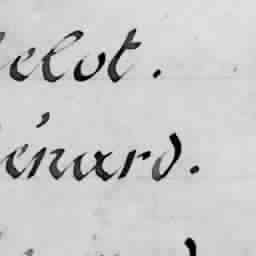 elot.
énard.